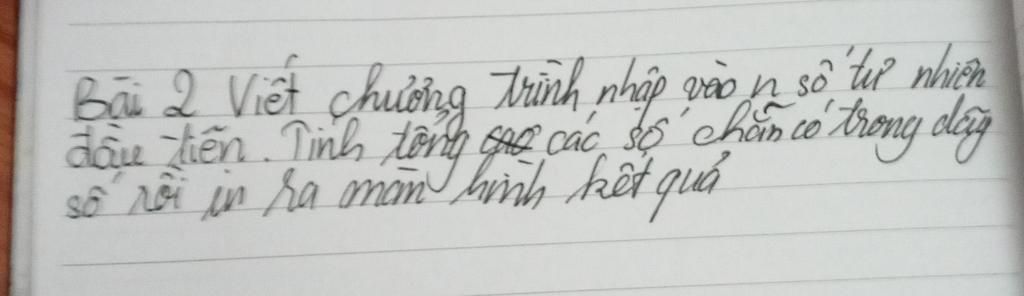 Bài 2 Viết chương trình nhập vào n số tự nhiên
đầu tiên. Tính tổng các số chẵn có trong dãy
số rồi in ra màn hình kết quả